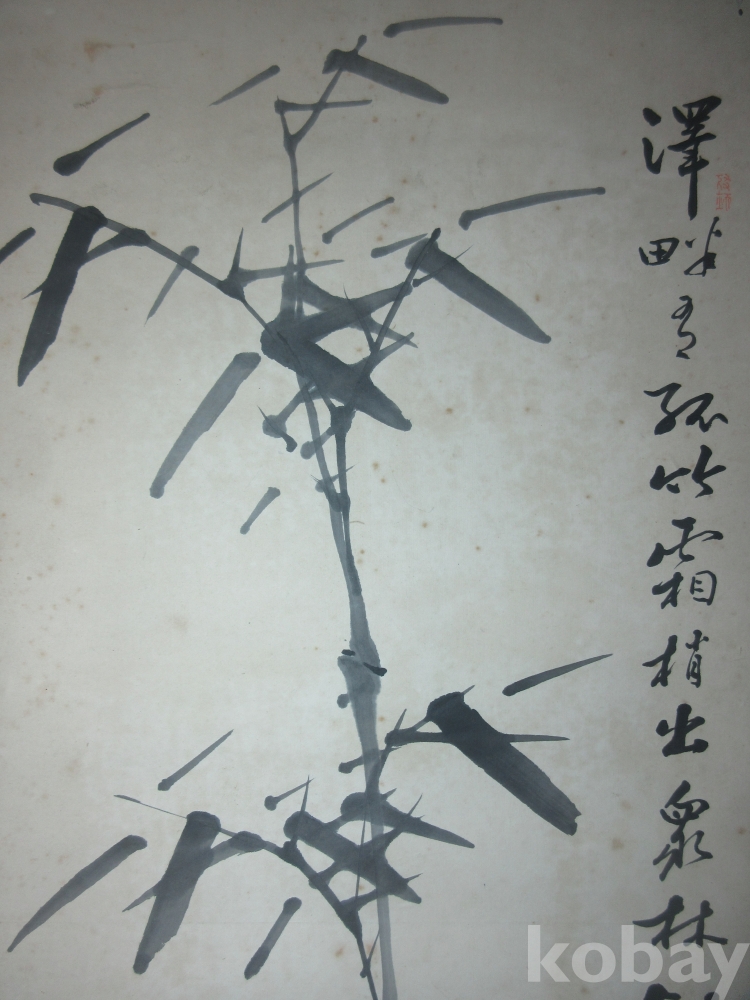 澤畔有孤竹霜梢出衆林
kobay